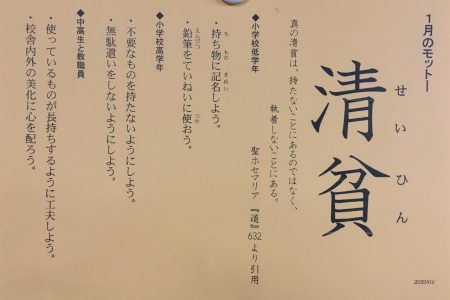 1月のモットー
清貧
せいひん
真の清貧は、持たないことにあるのではなく、
執着しないことにある。
聖ホセマリア 『道』632より引用
◆小学校低学年
・持ち物に記名しよう。
も もの きめい
・鉛筆をていねいに使おう。
えんぴつ つか
◆小学校高学年
・不要なものを持たないようにしよう。
・無駄遣いをしないようにしよう。
◆中高生と教職員
・使っているものが長持ちするように工夫しよう。
・校舎内外の美化に心を配ろう。